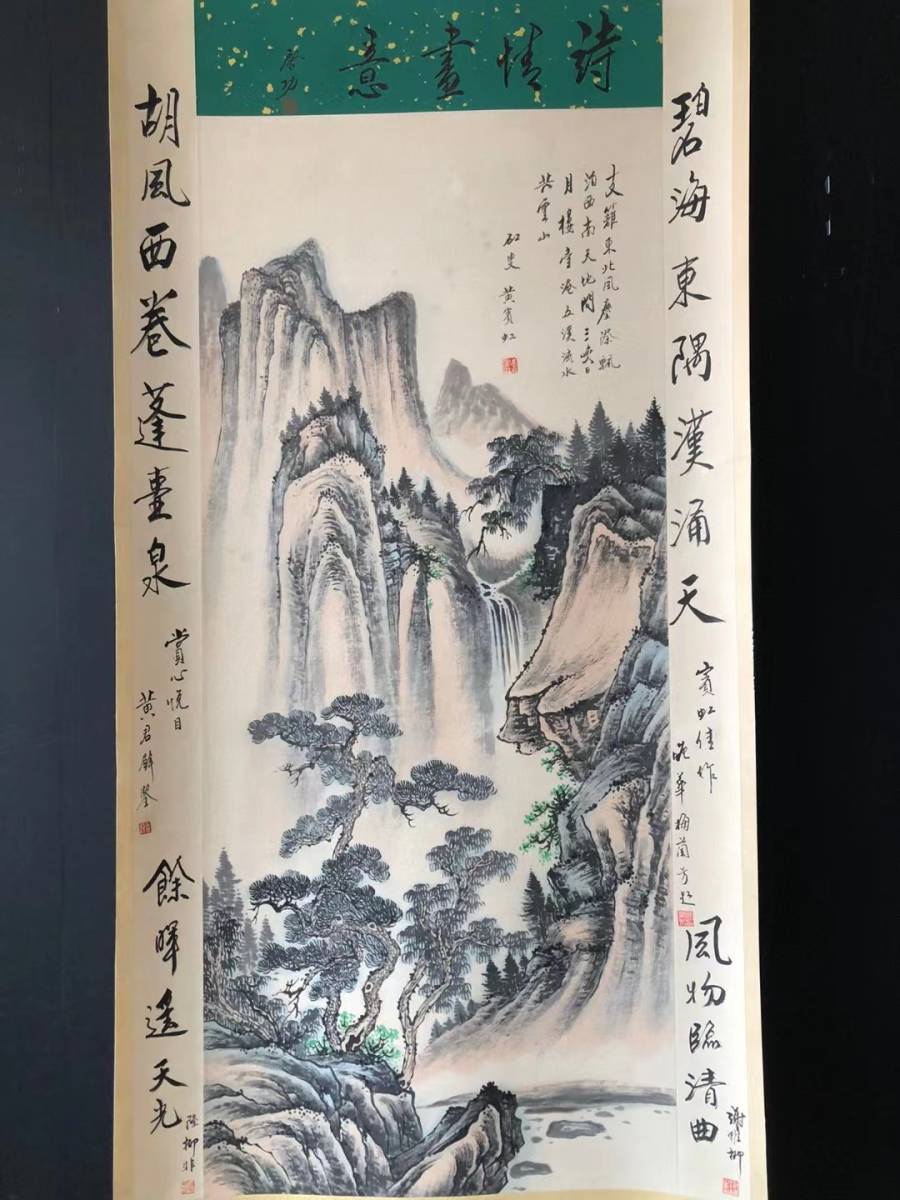 詩情畫意
啓功
碧海東隅漢涌天
賓虹佳作
畹華梅蘭芳題
風物臨清曲
謝稚柳
支籬東北風塵際飄
泊西南天地間三峽日
月樓臺淹五溪流水
共雲山
虹叟 黃賓虹
胡風西卷蓬壺泉
賞心悅目
黃君璧鑒
餘暉遥天光
陸抑非